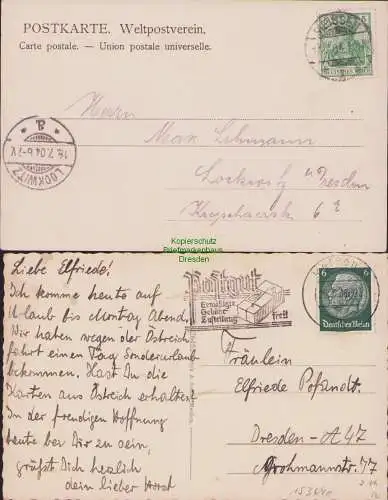 POSTKARTE. Weltpostverein.
Carte postale. — Union postale universelle.
Herrn
Max Lehmann
Lockwitz b/Dresden
6
LOCKWITZ
18.7.04.6-7N.
Kopierschutz
Briefmarkenhaus
Dresden
Liebe Elfriede!
Ich komme heute auf
Urlaub bis Montag Abend,
Wir haben wegen der Östreich
fahrt einen Tag Sonderurlaub
bekommen. Hast Du die
Karten aus Östreich erhalten?
In der freudigen Hoffnung
heute bei Dir zu sein,
grüßt Dich herzlich
dein lieber Horst
Postgut
Ermäßigte
Gebühr
Zustellung
frei
6 6
Deutsches Reich
Fräulein
Elfriede
Dresden-A 47
Grohmannstr. 77